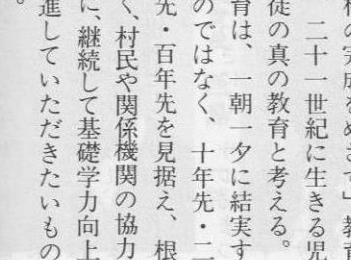 格の完成をめざして」教育
二十一世紀に生きる児
徒の真の教育と考える。
育は、一朝一夕に結実す
のではなく、十年先・二
先・百年先を見据え、根
く、村民や関係機関の協力
に、継続して基礎学力向上
進していただきたいもの
。